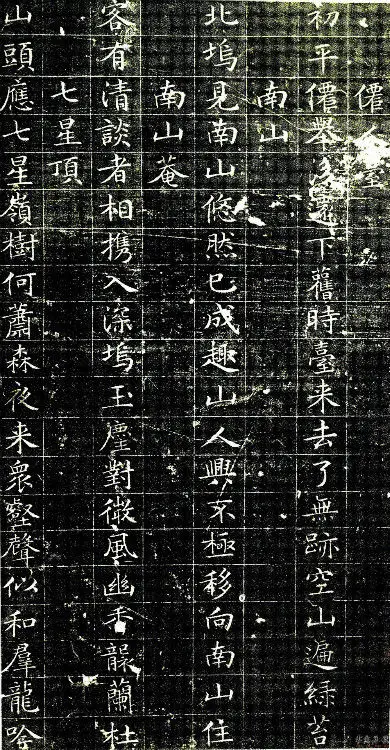 僊人臺
初平僊舉後還下舊時臺来去了無跡空山遍緑苔
南山
北塢見南山悠然已成趣山人興不極移向南山住
南山菴
客有清談者相携入深塢玉麈對微風幽香襲蘭杜
七星頂
山頭應七星嶺樹何蕭森夜来衆壑聲似和羣龍吟